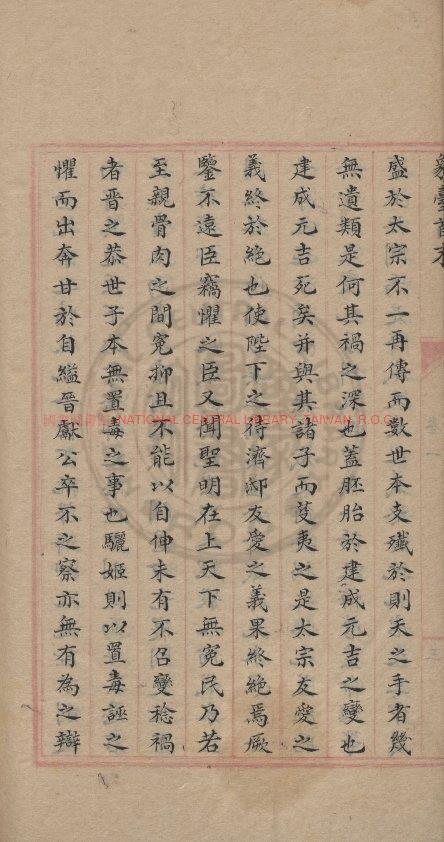 盛於太宗不一再傳而數世本支殲於則天之手者幾
無遺類是何其禍之深也蓋胚胎於建成元吉之變也
建成元吉死矣并與其諸子而芟夷之是太宗友愛之
義終於絶也使陛下之待濟邸友愛之義果終絶焉厥
鑒不遠臣竊懼之臣又聞聖明在上天下無寃民乃若
至親骨肉之間寃抑且不能以自伸未有不召變稔禍
者晉之恭世子本無置毒之事也驪姬則以置毒誣之
懼而出奔甘於自縊晉獻公卒不之察亦無有為之辯
國家圖書館 NATIONAL CENTRAL LIBRARY, TAIWAN, R.O.C